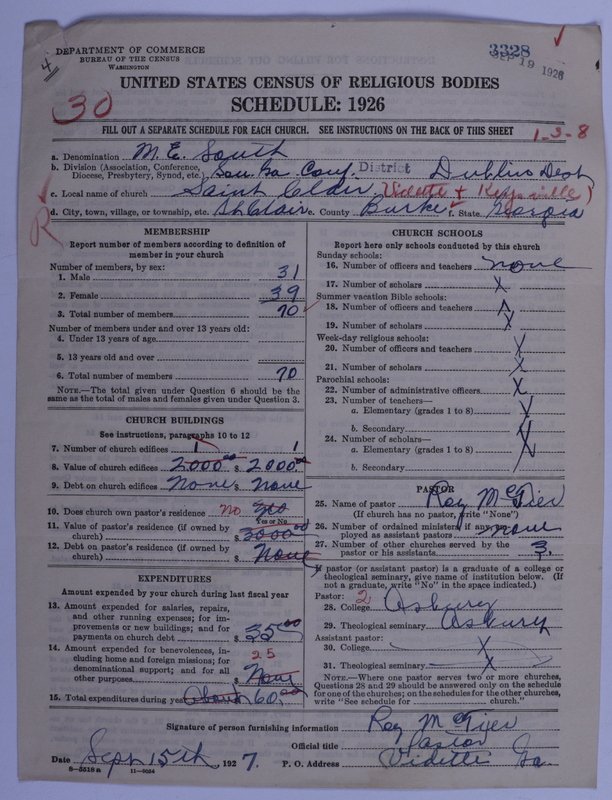 DEPARTMENT OF COMMERCE
BUREAU OF THE CENSUS
WASHINGTON
4
3328
SEP 19 1928
UNITED STATES CENSUS OF RELIGIOUS BODIES
SCHEDULE: 1926
30
FILL OUT A SEPARATE SCHEDULE FOR EACH CHURCH. SEE INSTRUCTIONS ON THE BACK OF THIS SHEET
1-3-8
a. Denomination M. E. South
b. Division (Association, Conference, Diocese, Presbytery, Synod, etc.) Sou Ga. Conf. District Dublin Dist
c. Local name of church Saint Clair (Vidette + Keysville)
d. City, town, village, or township, etc. St Clair e. County Burke f. State Georgia
R
MEMBERSHIP
Report number of members according to definition of
member in your church
Number of members, by sex:
1. Male 31
2. Female 39
3. Total number of members 70
Number of members under and over 13 years old:
4. Under 13 years of age
5. 13 years old and over
6. Total number of members 70
NOTE.—The total given under Question 6 should be the
same as the total of males and females given under Question 3.
CHURCH BUILDINGS
See instructions, paragraphs 10 to 12
7. Number of church edifices 1 1
8. Value of church edifices 2000.00 $ 2000.00
9. Debt on church edifices None $ None
10. Does church own pastor's residence No
Yes or No
11. Value of pastor's residence (if owned by
church) $ 3000.00
12. Debt on pastor's residence (if owned by
church) $ None
EXPENDITURES
Amount expended by your church during last fiscal year
13. Amount expended for salaries, repairs,
and other running expenses; for im-
provements or new buildings; and for
payments on church debt $ 35.00
14. Amount expended for benevolences, in-
cluding home and foreign missions; for
denominational support; and for all
other purposes $ None
25
15. Total expenditures during year About 60.00
CHURCH SCHOOLS
Report here only schools conducted by this church
Sunday schools:
16. Number of officers and teachers none
17. Number of scholars X
Summer vacation Bible schools:
18. Number of officers and teachers X
19. Number of scholars X
Week-day religious schools:
20. Number of officers and teachers X
21. Number of scholars X
Parochial schools:
22. Number of administrative officers X
23. Number of teachers—
a. Elementary (grades 1 to 8) X
b. Secondary X
24. Number of scholars—
a. Elementary (grades 1 to 8) X
b. Secondary
PASTOR
25. Name of pastor Roy McTier
(If church has no pastor, write "None")
26. Number of ordained ministers if any em-
ployed as assistant pastors none
27. Number of other churches served by the
pastor or his assistants 3,
If pastor (or assistant pastor) is a graduate of a college or
theological seminary, give name of institution below. (If
not a graduate, write "No" in the space indicated.)
Pastor: 2
28. College Asbury
29. Theological seminary Asbury
Assistant pastor:
30. College X
31. Theological seminary X
NOTE.—Where one pastor serves two or more churches,
Questions 28 and 29 should be answered only on the schedule
for one of the churches; on the schedules for the other churches,
write "See schedule for church."
Signature of person furnishing information Roy McTier
Official title Pastor
Date Sept 15th, 1927. P. O. Address Vidette Ga
8—5518a 11—9664